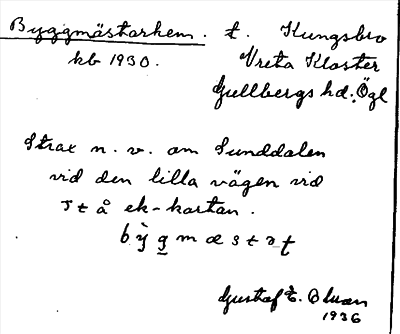 Byggmästarhem. t. Kungsbro
kb 1930. Vreta Kloster
Gullbergs hd. Ögl
Strax n. v. om Sunddalen
vid den lilla vägen vid
stå ek-kartan.
bỳg̲mæstat̲
Gustaf E.
1936